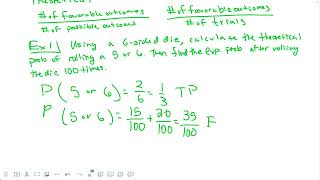 Theoretical
# of favorable outcomes
# of possible outcomes
# of favorable outcomes
# of trials
Ex 1) Using a 6-sided die, calculate the theoretical
prob of rolling a 5 or 6. Then find the exp. prob after rolling
the die 100 times.
P (5 or 6) = 2/6 = 1/3 TP
P (5 or 6) = 15/100 + 20/100 = 35/100 E